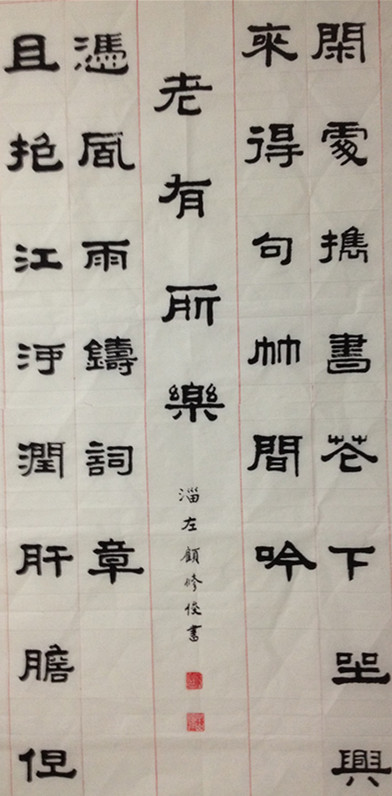 閑處攜書花下坐興
來得句竹間吟
老有所樂
淄左顧修俊書
且抱江潤肝膽但
憑風雨鑄詞章